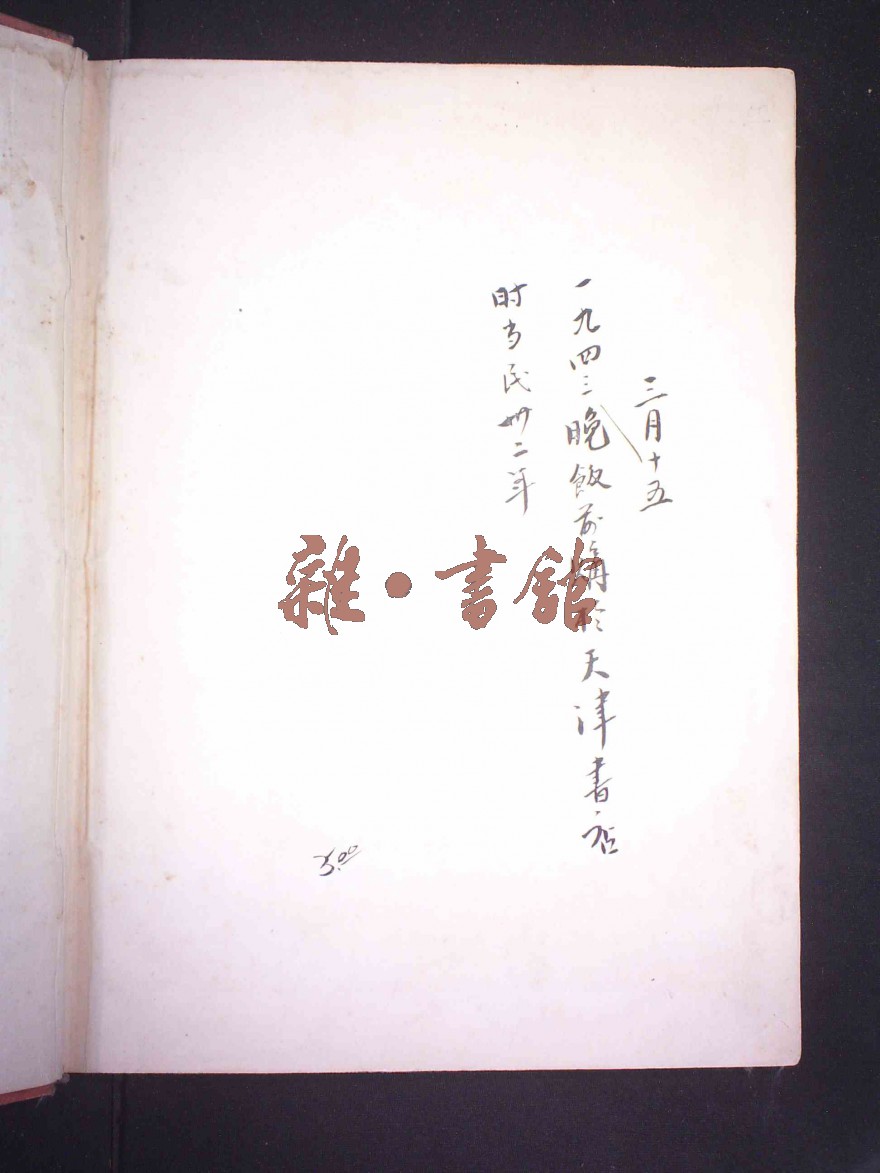 三月十五
一九四三晚飯前購於天津書店
时当民卅二年
雜·書館
5.00